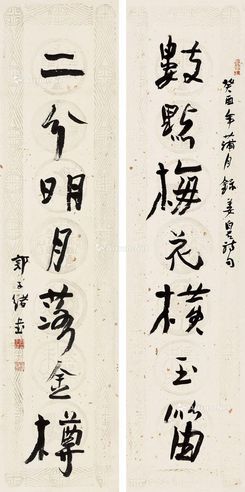 數點梅花橫玉笛
癸酉年蒲月錄姜白石詩句
二分明月落金樽
郭子緒書